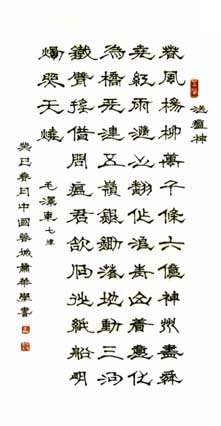 送瘟神
春風楊柳萬千條六億神州盡舜
堯紅雨隨心翻作浪青山着意化
為橋天連五嶺銀鋤落地動三河
鐵臂搖借問瘟君欲何往紙船明
燭照天燒
毛澤東七律
癸巳春日中國藝城蕭華學書